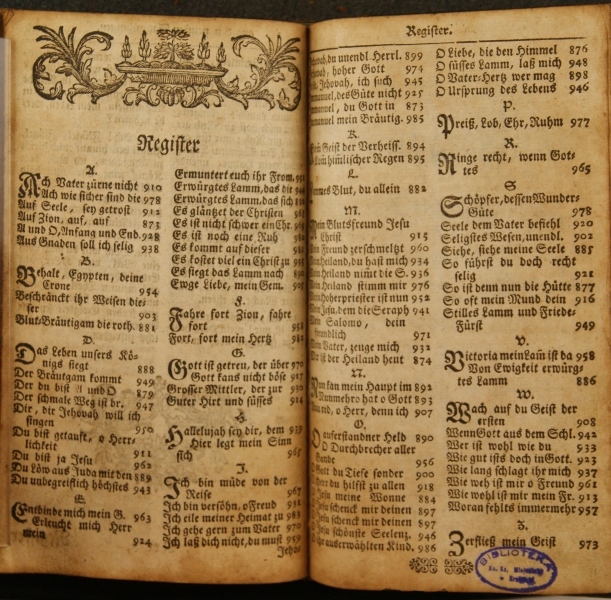 Register
A.
Ach Vater zürne nicht 910
Ach wie sicher sind die 978
Auf Seele, sey getrost 912
Auf Zion, auf, auf 873
A und O, Anfang und End. 928
Aus Gnaden soll ich selig 938
B.
Behalt, Egypten, deine
Crone 954
Beschränckt ihr Weisen die-
ser 903
Blut-Bräutigam die roth. 881
D.
Das Leben unsers Kö-
nigs siegt 888
Der Bräutgam kommt 949
Der du bist A und O 879
Der schmale Weg ist br. 947
Dir, dir Jehovah will ich
singen 950
Du bist getauft, o Herr-
lichkeit 911
Du bist ja Jesu 962
Du Löw aus Juda mit den 889
Du unbegreiflich höchstes 943
E.
Entbinde mich mein G. 963
Erleucht mich Herr
mein 924
Ermuntert euch ihr From.
Erwürgtes Lamm, das die
Erwürgtes Lamm, das sich
Es glänzet der Christen
Es ist nicht schwer ein Chr.
Es ist noch eine Ruh
Es kommt auf dieser
Es kostet viel ein Christ zu
Es siegt das Lamm nach
Ewge Liebe, mein Gem.
F.
Fahre fort Zion, fahre
fort
Fort, fort mein Hertz
G.
Gott ist getreu, der über 970
Gott kans nicht bös
Grosser Mittler, der zur
Guter Hirt und süsses 914
H.
Hallelujah sey dir, dem
Hier legt mein Sinn
sich
J.
Ich bin müde von der
Reise 967
Ich bin versöhn. o Freud
Ich eile meiner Heimat zu
Ich gehe gern zum Vater
Ich laß dich nicht, du must
Jehov
Register.
du unendl. Herrl. 899
hoher Gott 974
Jehovah, ich such 945
des Güte nicht 925
du Gott in 873
mein Bräutig. 985
K.
Geist der Verheiss. 894
himlischer Regen 895
L.
Blut, du allein 882
M.
Blutsfreund Jesu
Christ 915
freund zerschmeltzt 960
Heiland, du hast mich 934
Heiland nimt die S. 936
Heiland stimm mir 976
Hoherpriester ist nun 952
Jesu, dem die Seraph 941
Salomo, dein
freundlich 971
Vater, zeuge mich 932
ist der Heiland heut 874
N.
kan mein Haupt im 892
hat o Gott 893
o Herr, denn ich 907
O.
O auferstandner Held 890
O Durchbrecher aller
Bande 956
Gott du Tiefe sonder 900
du hilfst zu allen 918
Jesu meine Wonne 884
Jesu schenck mir deinen 897
Jesu schenck mir deinen 897
schönste Seelenz. 946
auserwählten Kind. 986
O Liebe, die den Himmel 876
O süsses Lamm, laß mich 948
O Vater-Hertz wer mag 898
O Ursprung des Lebens 946
P.
Preiß, Lob, Ehr, Ruhm 977
R.
Ringe recht, wenn Got-
tes 965
S
Schöpfer, dessen Wunder-
Güte 978
Seele dem Vater befiehl 920
Seligstes Wesen, unendl. 902
Siehe, sieh meine Seele 885
So führst du doch recht
selig 921
So ist denn nun die Hütte 877
So oft mein Mund dein 916
Stilles Lamm und Friede-
Fürst 949
V.
Victoria mein Lam ist da 958
Von Ewigkeit erwürg-
tes Lamm 886
W.
Wach auf du Geist der
ersten 908
Wenn Gott aus dem Schl. 942
Wer ist wohl wie du 933
Wie gut ists doch in Gott. 923
Wie lang schlagt ihr mich 937
Wie weh ist mir o Freund 961
Wie wohl ist mir mein Fr. 913
Woran fehlts immermehr 957
Z.
Zerfließ mein Geist 973
BIBLIOTEKA